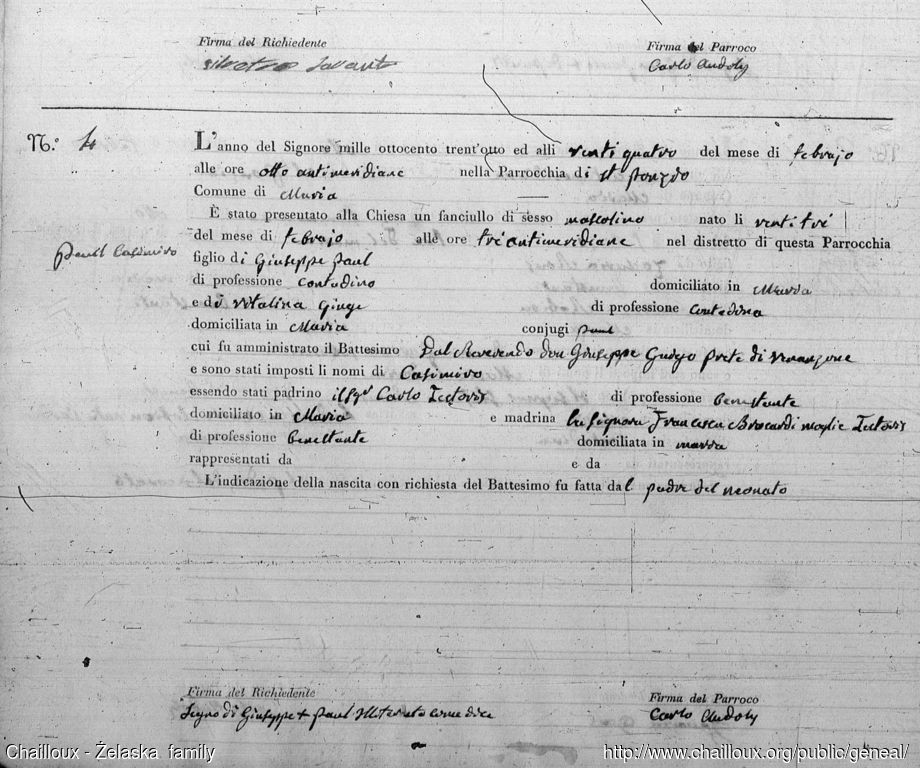 Firma del Richiedente Firma del Parroco
Carlo Audoly
N.° 4 L'anno del Signore mille ottocento trent'otto ed alli venti quatro del mese di febrajo
alle ore otto antimeridiane nella Parrocchia di st Ponzo
Comune di Maria
È stato presentato alla Chiesa un fanciullo di sesso mascolino nato li ventitrè
del mese di febrajo alle ore tre antimeridiane nel distretto di questa Parrocchia
Paul Casimiro figlio di Giuseppe Paul
di professione contadino domiciliato in Maria
e di Vitalina Ginge di professione contadina
domiciliata in Maria conjugi Paul
cui fu amministrato il Battesimo Dal Reverendo don Giuseppe prete di
e sono stati imposti li nomi di Casimiro
essendo stati padrino il Sgr Carlo di professione benestante
domiciliato in Maria e madrina la signora Francesca Brocardi moglie
di professione benestante domiciliata in maria
rappresentati da e da
L'indicazione della nascita con richiesta del Battesimo fu fatta dal padre del neonato
Firma del Richiedente Firma del Parroco
Segno di Giuseppe + Paul illiterato come dice Carlo Audoly
Chailloux - Želaska family http://www.chailloux.org/public/geneal/